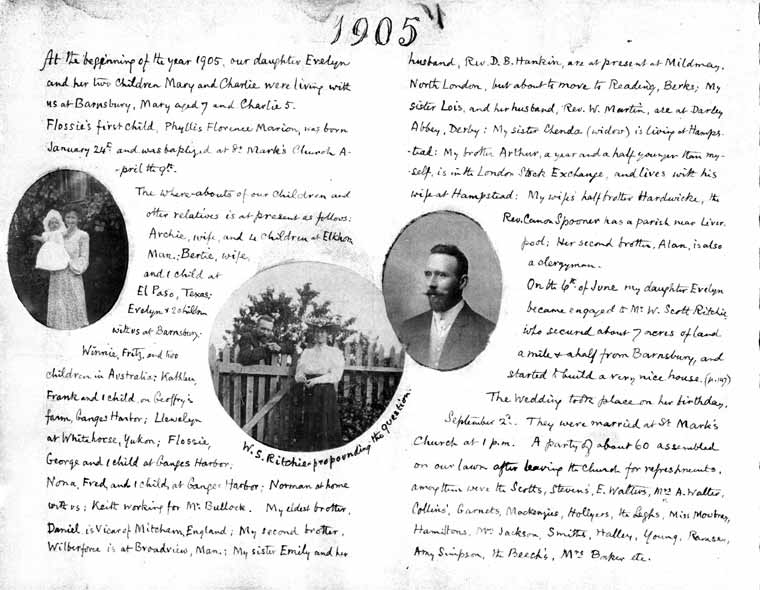 1905
At the beginning of the year 1905, our daughter Evelyn
and her two children Mary and Charlie were living with
us at Barnsbury, Mary aged 7 and Charlie 5.
Flossie's first child, Phyllis Florence Marion, was born
January 24th and was baptized at St. Mark's Church A-
-pril the 9th.
The where-abouts of our children and
other relatives is at present as follows:
Archie, wife, and 4 children at Elkhorn
Man.; Bertie, wife,
and 1 child at
El Paso, Texas;
Evelyn & 2 children
with us at Barnsbury.
Winnie, Fritz, and two
children in Australia; Kathleen,
Frank and 1 child, on Geoffry's
farm, Ganges Harbor; Llewelyn
at Whitehorse, Yukon; Flossie,
George and 1 child at Ganges Harbor;
Nona, Fred, and 1 child, at Ganges Harbor; Norman at home
with us; Keith working for Mr. Bullock. My eldest brother,
Daniel, is Vicar of Mitcham, England; My second brother,
Wilberforce is at Broadview, Man.; My sister Emily and her
W.S. Ritchie propounding the question.
husband, Rev. D.B. Hankin, are at present at Mildmay,
North London, but about to move to Reading, Berks; My
sister Lois, and her husband, Rev. W. Martin, are at Darley
Abbey, Derby: My sister (widow) is living at Hamps-
-tead: My brother Arthur, a year and a half younger than my-
-self, is in the London Stock Exchange, and lives with his
wife at Hampstead: My wife's half brother Hardwicke, the
Rev. Canon Spooner has a parish near Liver-
pool; Her second brother, Alan, is also
a clergyman.
On the 6th of June my daughter Evelyn
became engaged to Mr. W. Scott Ritchie
who secured about 7 acres of land
a mile & a half from Barnsbury, and
started to build a very nice house. (p. 147)
The Wedding took place on her birthday,
September 2d. They were married at St Mark's
Church at 1 p.m. A party of about 60 assembled
on our lawn after leaving the church for refreshments,
among them were the Scotts, Stevens, E. Walters, Mrs A. Walter,
Collins', Garnets, Mackenzies, Holtyers, the Leghs, Miss Mowbray,
Hamiltons, Mrs Jackson, Smiths, Halley, Young,
Amy Simpson, the Beech's, Mrs Borker etc.